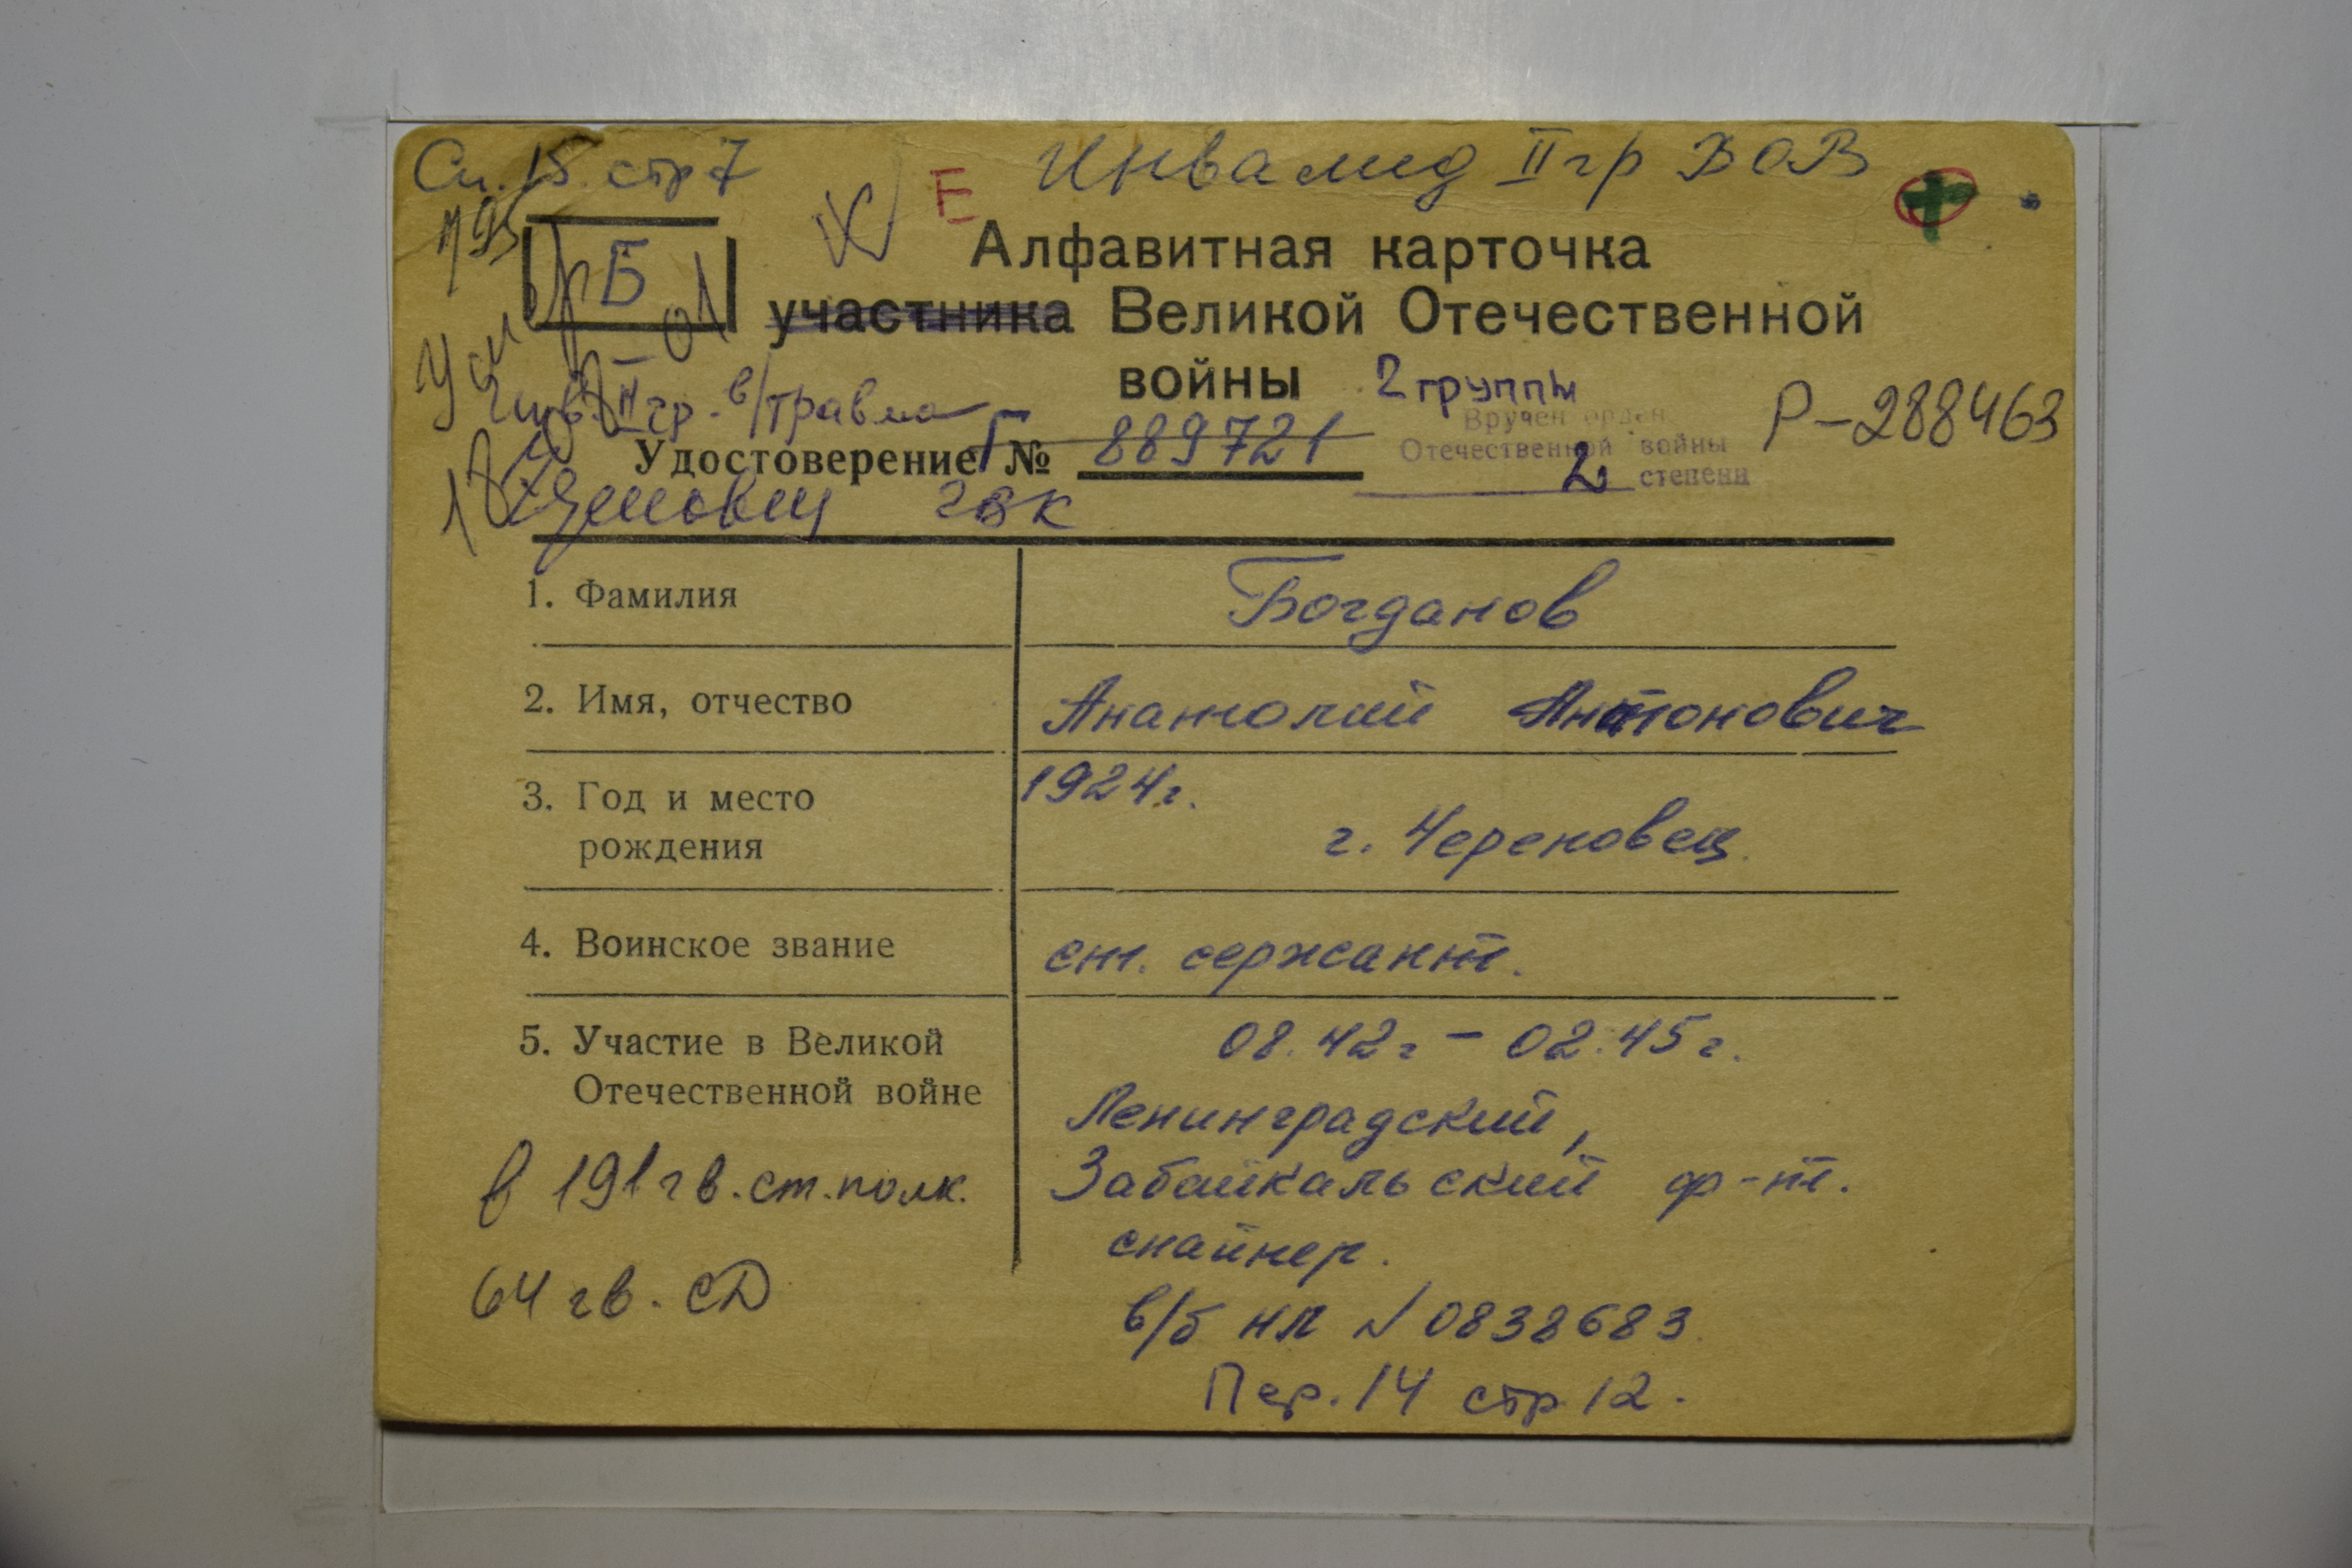 Сп. 15. стр 7
Инвалид II гр ВОВ
Е
Б
Алфавитная карточка
участника Великой Отечественной
войны 2 группы
Умер
Инв. II гр. в/травма
Вручен орден
Отечественной войны
2 степени
Р-288463
Удостоверение Г № 889721
1. Фамилия
Богданов
2. Имя, отчество
Анатолий Антонович
3. Год и место
рождения
1924г.
г. Череповец.
4. Воинское звание
ст. сержант.
5. Участие в Великой
Отечественной войне
08.42г – 02.45г.
Ленинградский,
Забайкальский ф-т.
снайпер.
в/б нп № 0838683.
Пер. 14 стр 12.
в 191 гв. ст. полк.
64 гв. СД